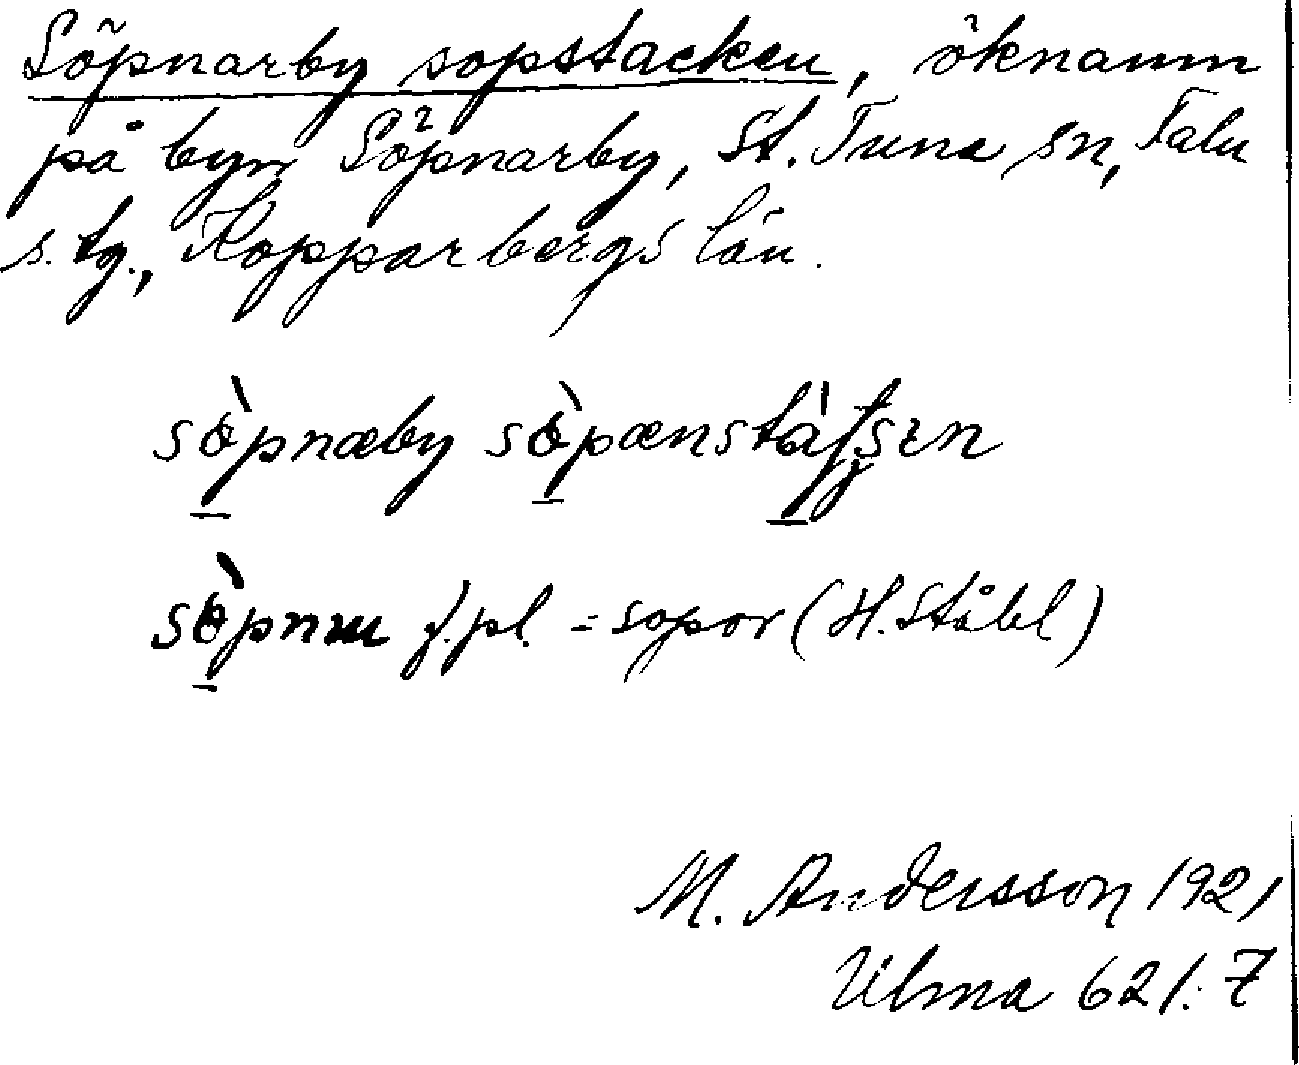 Söpnarby sopstacken, öknamn
på byn Söpnarby, St. Tuna sn, Falu
s. tg., Kopparbergs län.
sòpnæby sòpænstàʃʂɪn
sòpnɯ f. pl. = sopor (H. Ståhl)
M. Andersson 1921
Ulma 621:7